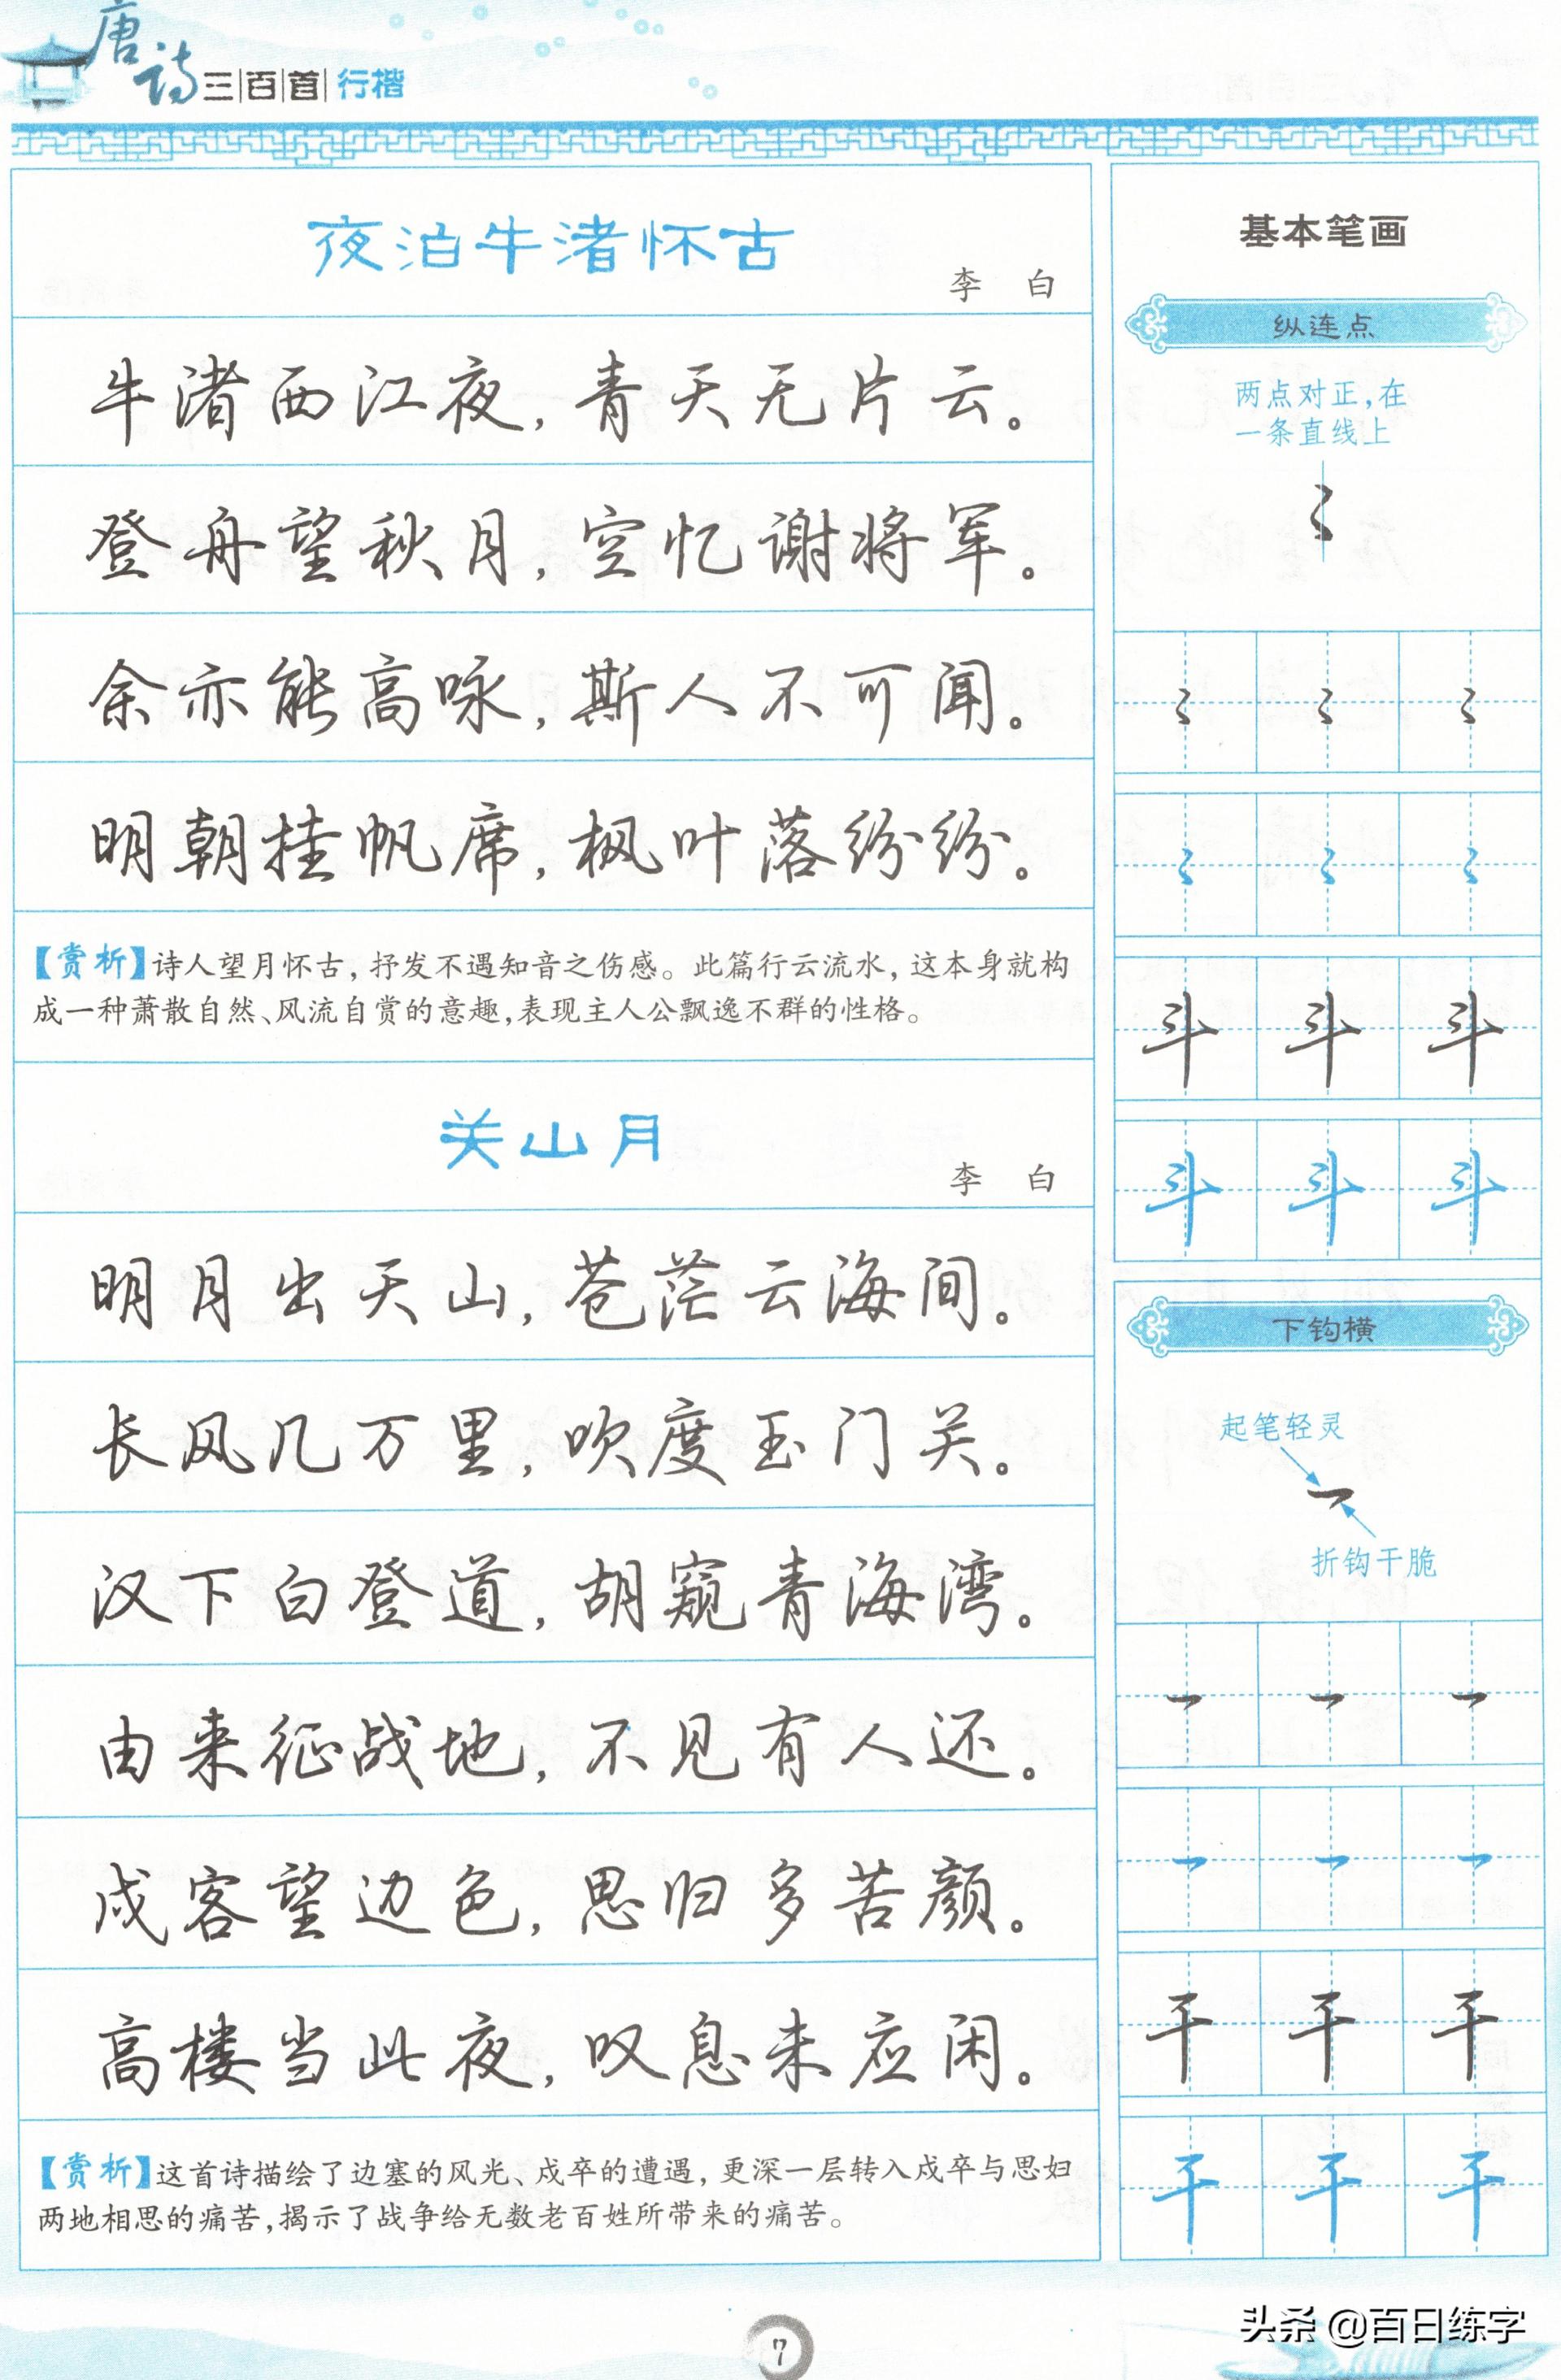 唐诗三百首 行楷
夜泊牛渚怀古
李 白
牛渚西江夜，青天无片云。
登舟望秋月，空忆谢将军。
余亦能高咏，斯人不可闻。
明朝挂帆席，枫叶落纷纷。
【赏析】诗人望月怀古，抒发不遇知音之伤感。此篇行云流水，这本身就构
成一种萧散自然、风流自赏的意趣，表现主人公飘逸不群的性格。
关山月
李 白
明月出天山，苍茫云海间。
长风几万里，吹度玉门关。
汉下白登道，胡窥青海湾。
由来征战地，不见有人还。
戍客望边色，思归多苦颜。
高楼当此夜，叹息未应闲。
【赏析】这首诗描绘了边塞的风光、戍卒的遭遇，更深一层转入戍卒与思妇
两地相思的痛苦，揭示了战争给无数老百姓所带来的痛苦。
基本笔画
纵连点
两点对正，在
一条直线上
斗 斗 斗
斗 斗 斗
下钩横
起笔轻灵
折钩干脆
干 干 干
干 干 干
7
头条 @百日练字